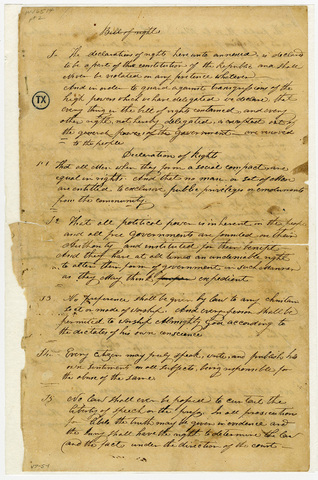 Bill of rights
S. The declaration of rights hereunto annexed is declared
to be a part of this constitution of the Republic and shall
never be violated on any pretence whatever
And in order to guard against transgressions of the
high powers which we have delegated we declare that
every thing in this bill of rights contained, and every
other right, not hereby delegated, is excepted out of
the general powers of the Government and reserved
to the people
TX
Declaration of Rights
1st That all Men when they form a social compact are
equal in rights. And that no man or set of Men
are entitled to exclusive public privileges or emoluments
from the community
S2 That all political power is inherent in the people
and all free Governments are founded on their
Authority and instituted for their benefit
And they have at all times an undeniable right
to alter their form of government in such manner
as they May think expedient
S3 No Preference shall be given by law to any christian
sect or mode of worship. And every person shall be
permitted to worship Almighty God according to
the dictates of his own conscience
4th Every Citizen may freely speak, write, and publish his
own sentiments on all subjects, being responsible for
the abuse of the same
S5 No Law shall ever be passed to curtail the
liberty of speech or the press. In all prosecutions
for libels the truth may be given in evidence and
the Jury shall have the right to determine the Law
and the fact under the direction of the court